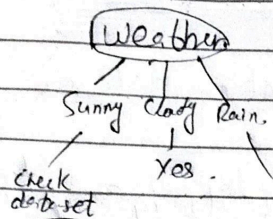 Weather
Sunny Clody Rain.
check Yes.
data set